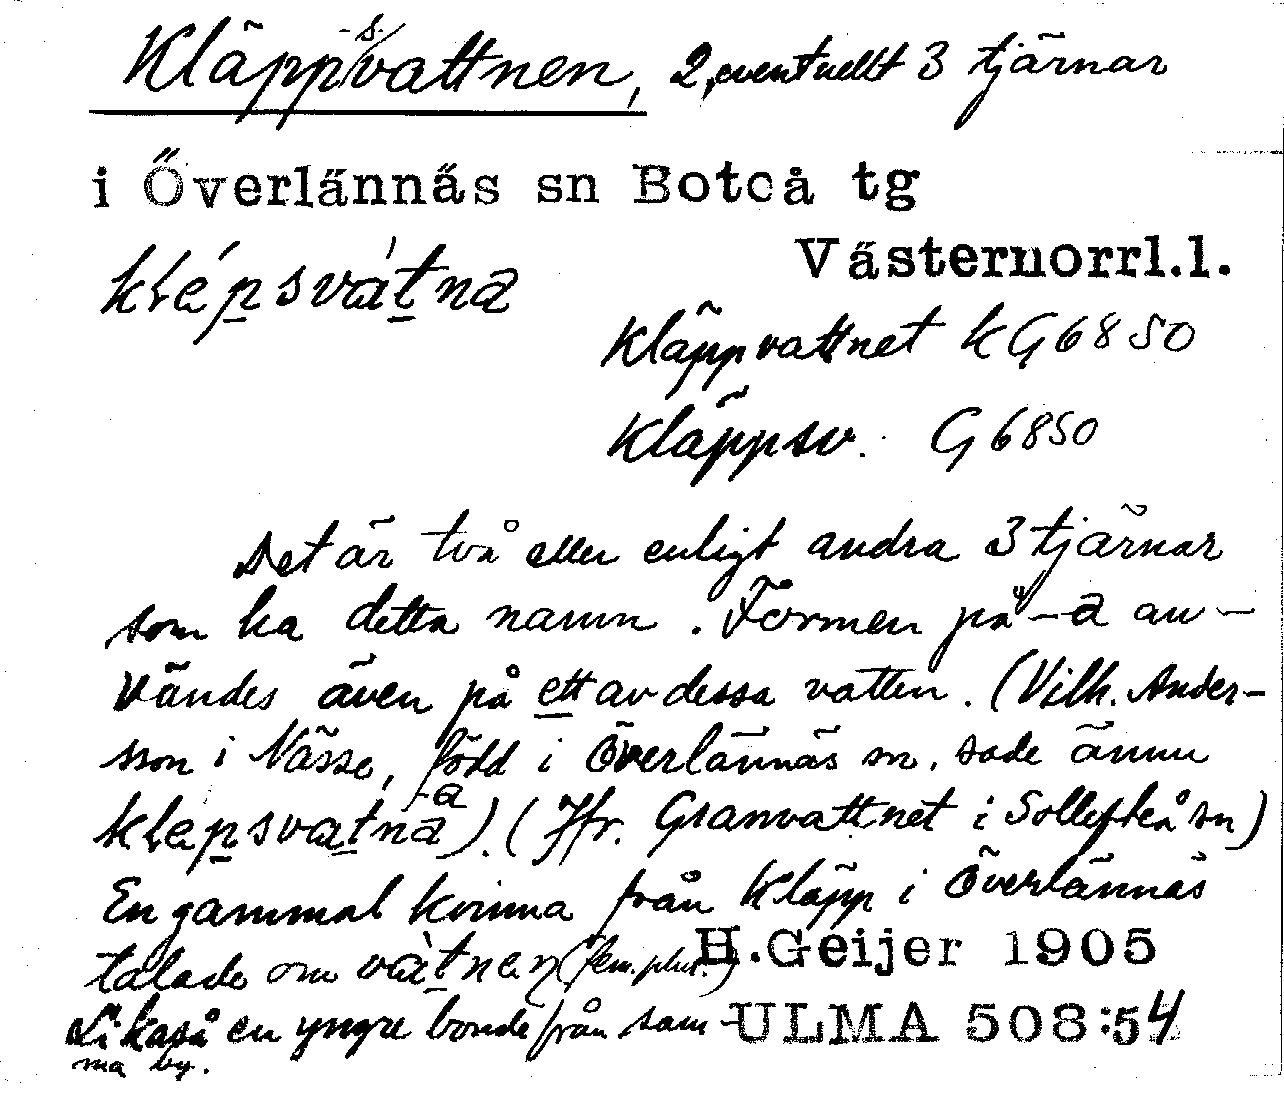 Kläpp-s-vattnen, 2, eventuellt 3 tjärnar
i Överlännäs sn Boteå tg
Västernorrl.l.
klépsvàtna
Kläppvattnet k G 6850
Kläppsv. G 6850
Det är två eller enligt andra 3 tjärnar
som ha detta namn. Formen på -a an-
vändes även på ett av dessa vatten. (Vilh. Anders-
son i Nässe, född i Överlännäs sn, sade ännu
-a
klepsvatna). (Jfr. Granvattnet i Sollefteå sn)
En gammal kvinna från Kläpp i Överlännäs
talade om vàtnen (fem. plur.)
H.Geijer 1905
Likaså en yngre bonde från sam-
ma by.
ULMA 508:54